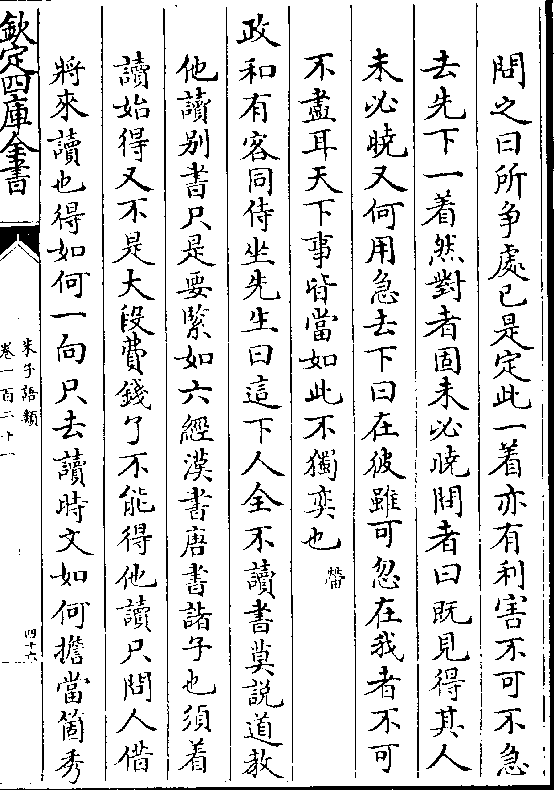 問之曰所爭處已是定此一着亦有利害不可不急
去先下一着然對者固未必曉問者曰既見得其人
未必曉又何用急去下曰在彼雖可忽在我者不可
不盡耳天下事皆當如此不獨奕也㽦
政和有客同侍坐先生曰這下人全不讀書莫說道教
他讀别書只是要緊如六經漢書唐書諸子也須着
讀始得又不是大段費錢了不能得他讀只問人借
將來讀也得如何一向只去讀時文如何擔當箇秀
欽定四庫全書
朱子語類
卷一百二十一
四十六